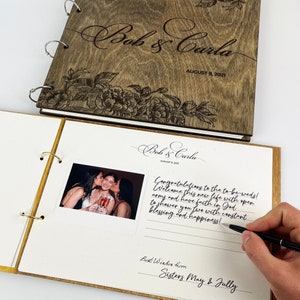 Bob & Carla
AUGUST 8, 2021
Bob & Carla
AUGUST 8, 2021
Congratulations to the to-be-weds!
Welcome this new life with open
arms and have faith in God
to shower you two with constant
blessing and happiness!
Best Wishes from
Sisters May & Jully